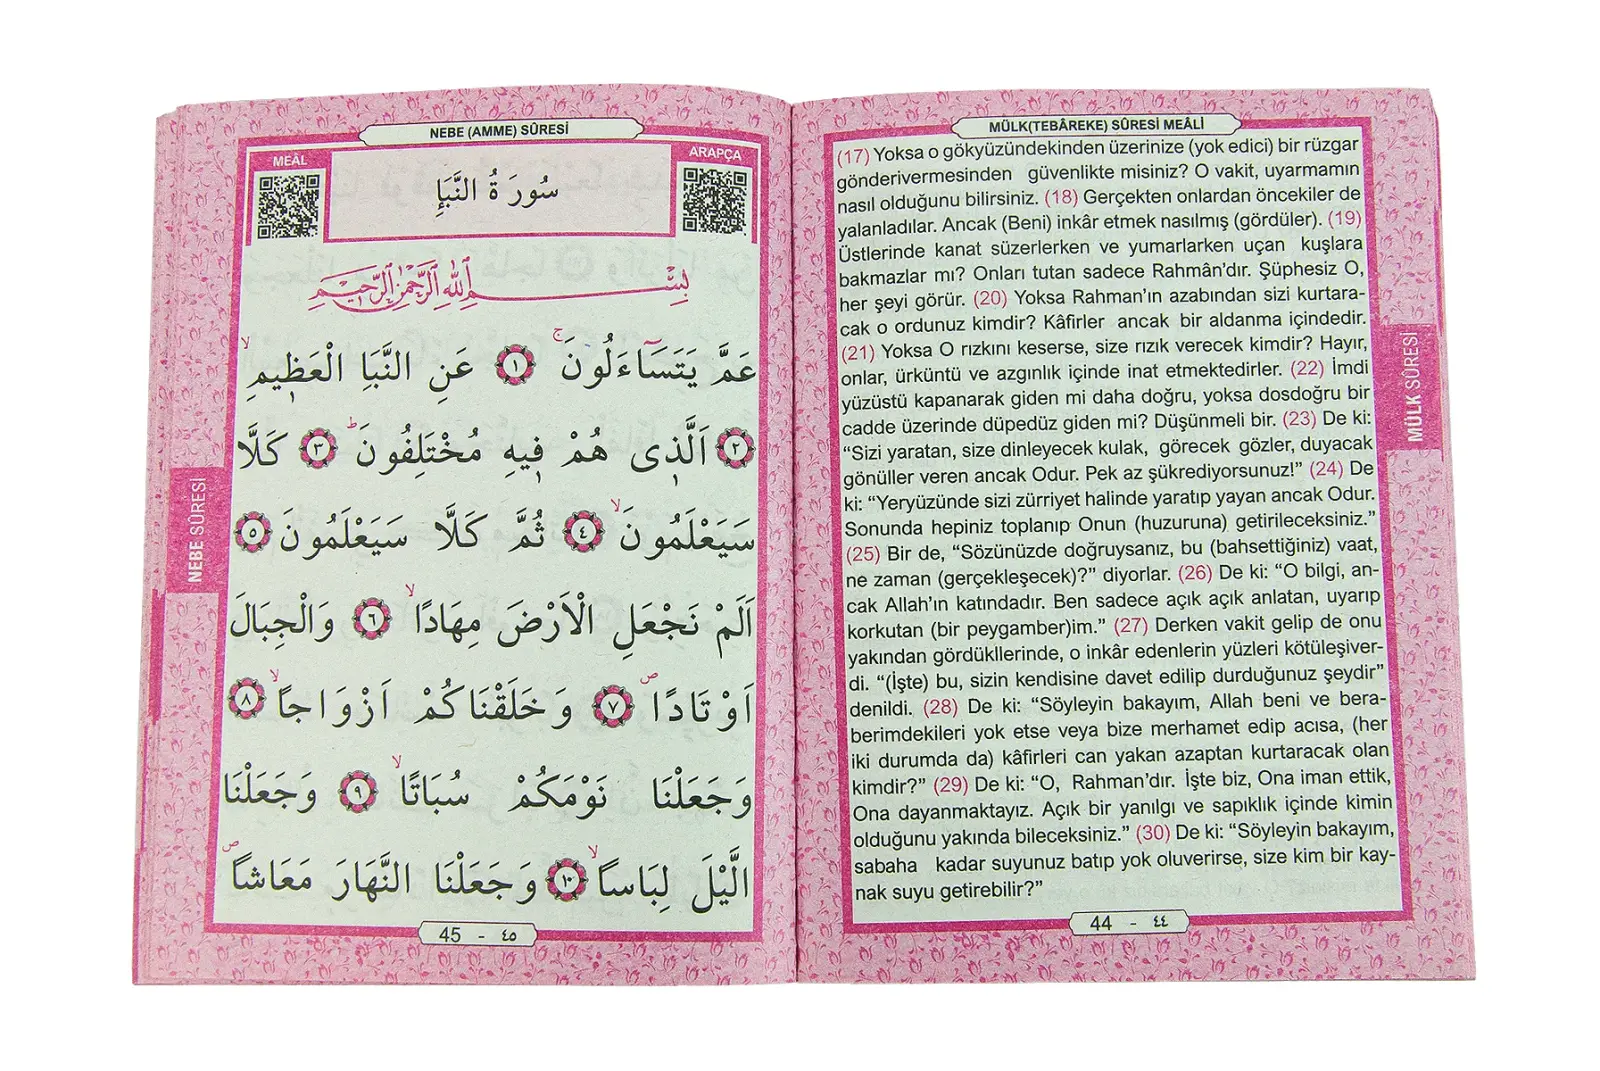 MÜLK(TEBÂREKE) SÛRESİ MEÂLİ
(17) Yoksa o gökyüzündekinden üzerinize (yok edici) bir rüzgar
gönderivermesinden güvenlikte misiniz? O vakit, uyarmamın
nasıl olduğunu bilirsiniz. (18) Gerçekten onlardan öncekiler de
yalanladılar. Ancak (Beni) inkâr etmek nasılmış (gördüler). (19)
Üstlerinde kanat süzerlerken ve yumarlarken uçan kuşlara
bakmazlar mı? Onları tutan sadece Rahmân’dır. Şüphesiz O,
her şeyi görür. (20) Yoksa Rahman’ın azabından sizi kurtara-
cak o ordunuz kimdir? Kâfirler ancak bir aldanma içindedir.
(21) Yoksa O rızkını keserse, size rızık verecek kimdir? Hayır,
onlar, ürküntü ve azgınlık içinde inat etmektedirler. (22) İmdi
yüzüstü kapanarak giden mi daha doğru, yoksa dosdoğru bir
cadde üzerinde düpedüz giden mi? Düşünmeli bir. (23) De ki:
“Sizi yaratan, size dinleyecek kulak, görecek gözler, duyacak
gönüller veren ancak Odur. Pek az şükrediyorsunuz!” (24) De
ki: “Yeryüzünde sizi zürriyet halinde yaratıp yayan ancak Odur.
Sonunda hepiniz toplanıp Onun (huzuruna) getirileceksiniz.”
(25) Bir de, “Sözünüzde doğruysanız, bu (bahsettiğiniz) vaat,
ne zaman (gerçekleşecek)?” diyorlar. (26) De ki: “O bilgi, an-
cak Allah’ın katındadır. Ben sadece açık açık anlatan, uyarıp
korkutan (bir peygamber)im.” (27) Derken vakit gelip de onu
yakından gördükllerinde, o inkâr edenlerin yüzleri kötüleşiver-
di. “(İşte) bu, sizin kendisine davet edilip durduğunuz şeydir”
denildi. (28) De ki: “Söyleyin bakayım, Allah beni ve bera-
berimdekileri yok etse veya bize merhamet edip acısa, (her
iki durumda da) kâfirleri can yakan azaptan kurtaracak olan
kimdir?” (29) De ki: “O, Rahman’dır. İşte biz, Ona iman ettik,
Ona dayanmaktayız. Açık bir yanılgı ve sapıklık içinde kimin
olduğunu yakında bileceksiniz.” (30) De ki: “Söyleyin bakayım,
sabaha kadar suyunuz batıp yok oluverirse, size kim bir kay-
nak suyu getirebilir?”
MÜLK SÛRESİ
44 - ٤٤
NEBE (AMME) SÛRESİ
MEÂL
ARAPÇA
سُورَةُ النَّبَإِ
بِسْمِ اللهِ الرَّحْمٰنِ الرَّحِيمِ
عَمَّ يَتَسَآءَلُونَۚ ﴿١﴾ عَنِ النَّبَاِ الْعَظِيمِۙ
﴿٢﴾ اَلَّذِى هُمْ فِيهِ مُخْتَلِفُونَۜ ﴿٣﴾ كَلَّا
سَيَعْلَمُونَۙ ﴿٤﴾ ثُمَّ كَلَّا سَيَعْلَمُونَ ﴿٥﴾
اَلَمْ نَجْعَلِ الْاَرْضَ مِهَادًاۙ ﴿٦﴾ وَالْجِبَالَ
اَوْتَادًاۖ ﴿٧﴾ وَخَلَقْنَاكُمْ اَزْوَاجًاۙ ﴿٨﴾
وَجَعَلْنَا نَوْمَكُمْ سُبَاتًاۙ ﴿٩﴾ وَجَعَلْنَا
الَّيْلَ لِبَاسًاۙ ﴿١٠﴾ وَجَعَلْنَا النَّهَارَ مَعَاشًاۖ
NEBE SÛRESİ
45 - ٤٥